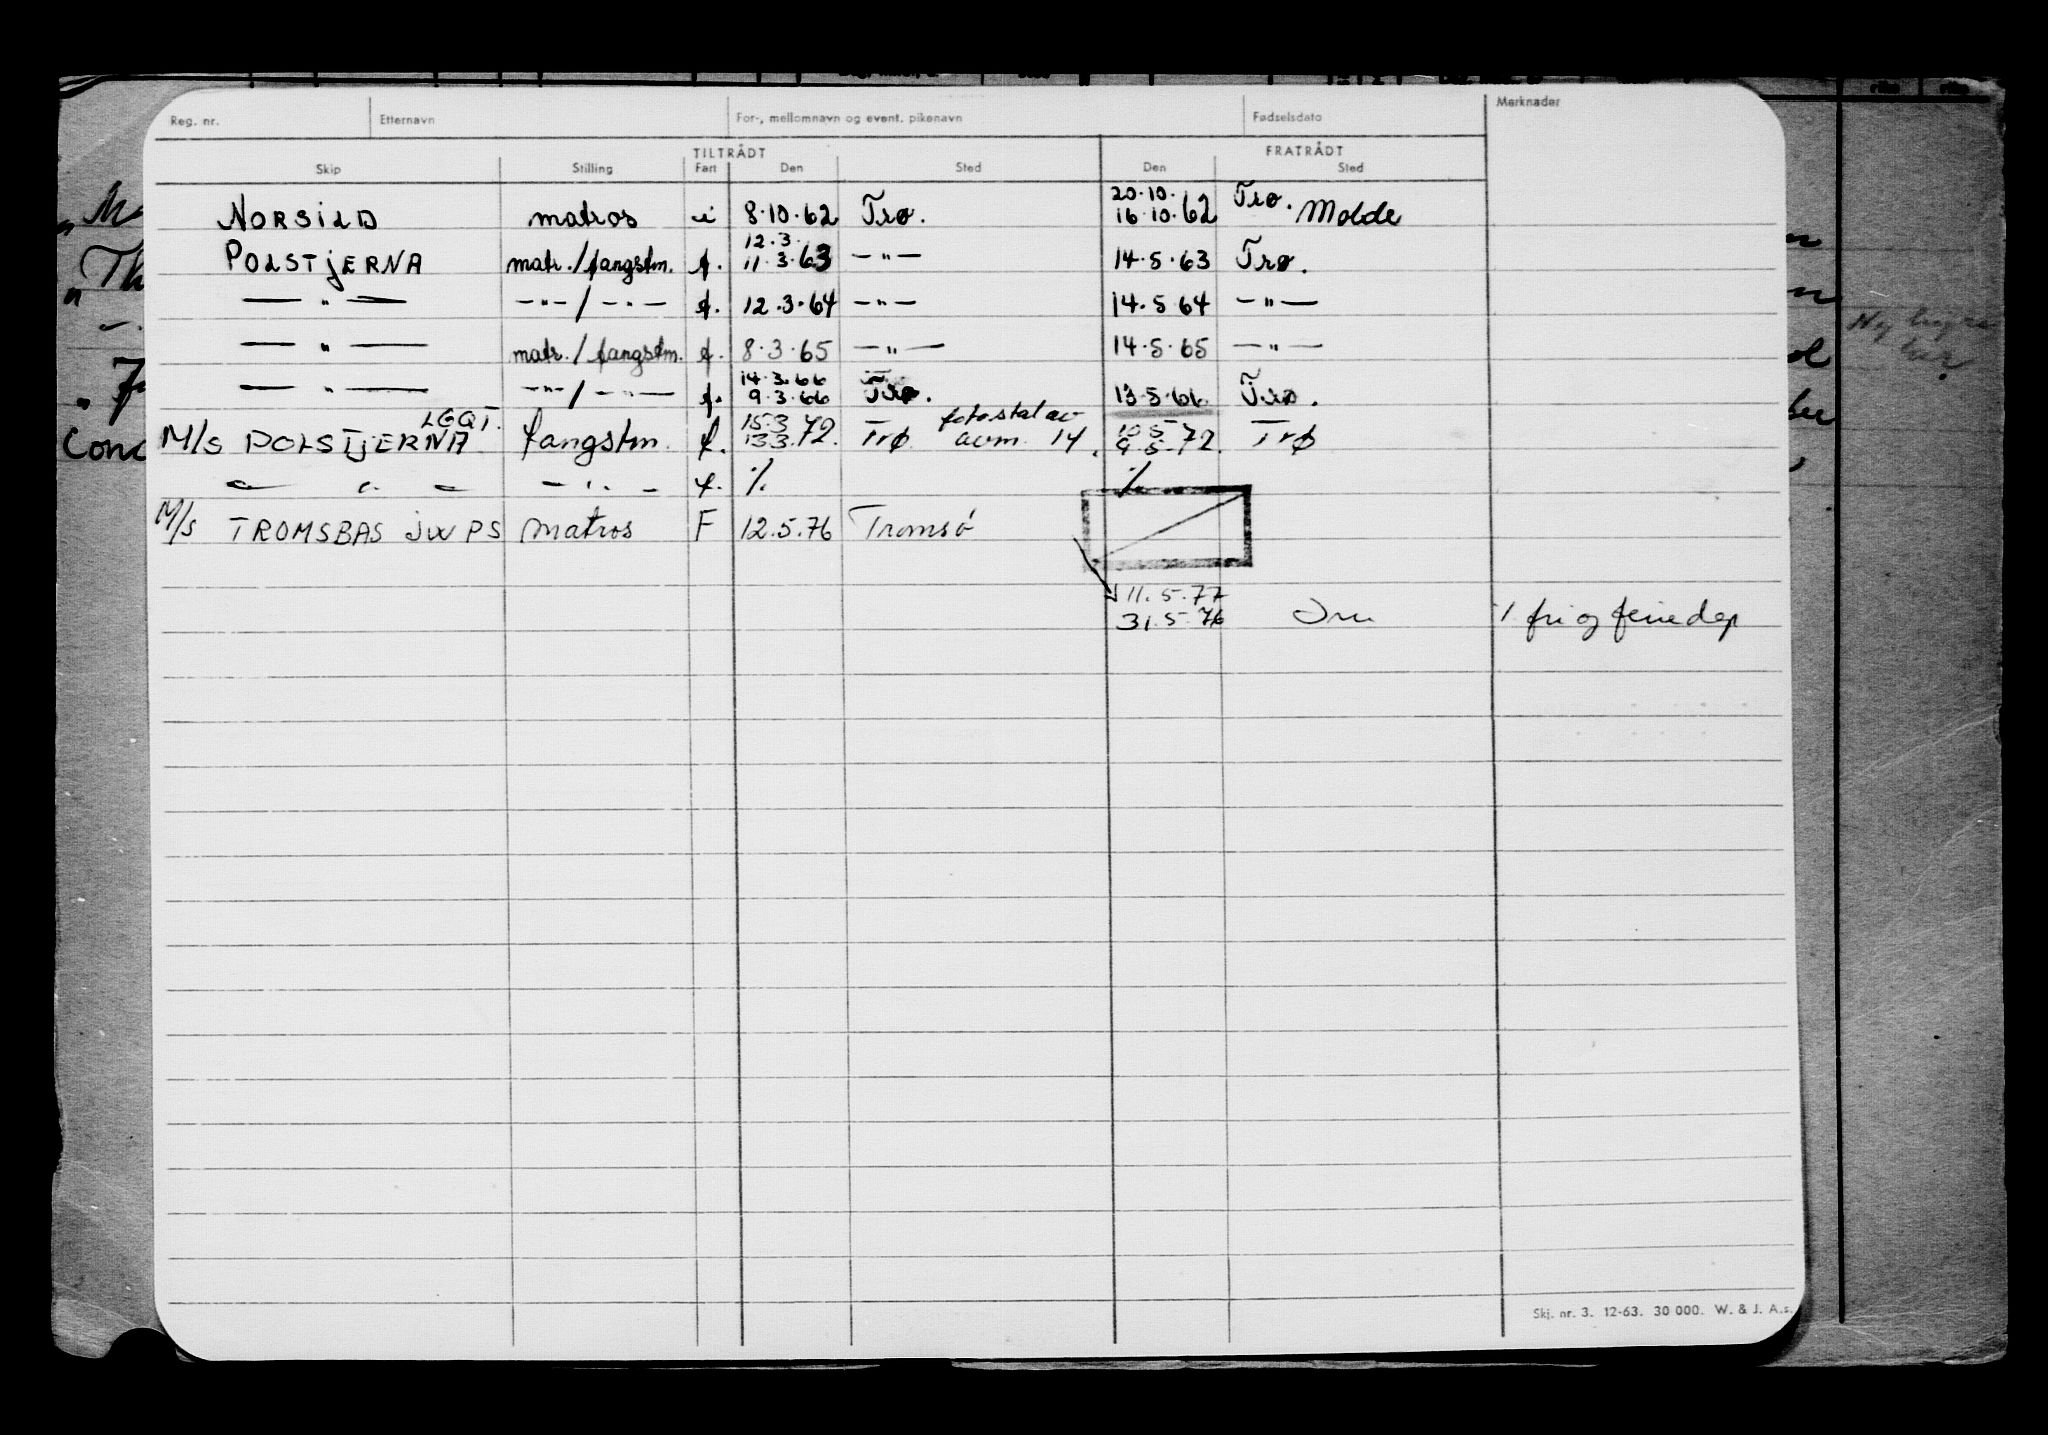 Reg. nr. Etternavn For-, mellomnavn og event. pikenavn Fødselsdato Merknader
TILTRÅDT FRATRÅDT
Skip Stilling Fart Den Sted Den Sted
20.10.
NORSILD matros i 8.10.62 Trø. 16.10.62 Trø. Molde
12.3.
POLSTjERNA matr./fangstm. f. 11.3.63 — " — 14.5.63 Trø.
— " — — " — / — " — f. 12.3.64 — " — 14.5.64 — " —
— " — matr./fangstm. f. 8.3.65 — " — 14.5.65 — " —
14.3.66
— " — — " — / — " — f. 9.3.66 Trø. 13.5.66 Trø.
LGQT. 15.3 fotostat av 10.5
M/s POLSTjERNA fangstm. f. 13.3.72. Trø avm. 14. 9.5.72. Trø
— " — — " — f. ./. ./.
M/s TROMSBAS jWPS matros F 12.5.76 Tromsø
11.5.77
31.5.76 fri og feriedep
Skj. nr. 3. 12-63. 30 000. W. & J. A.s.
"Th
Conc
Ny